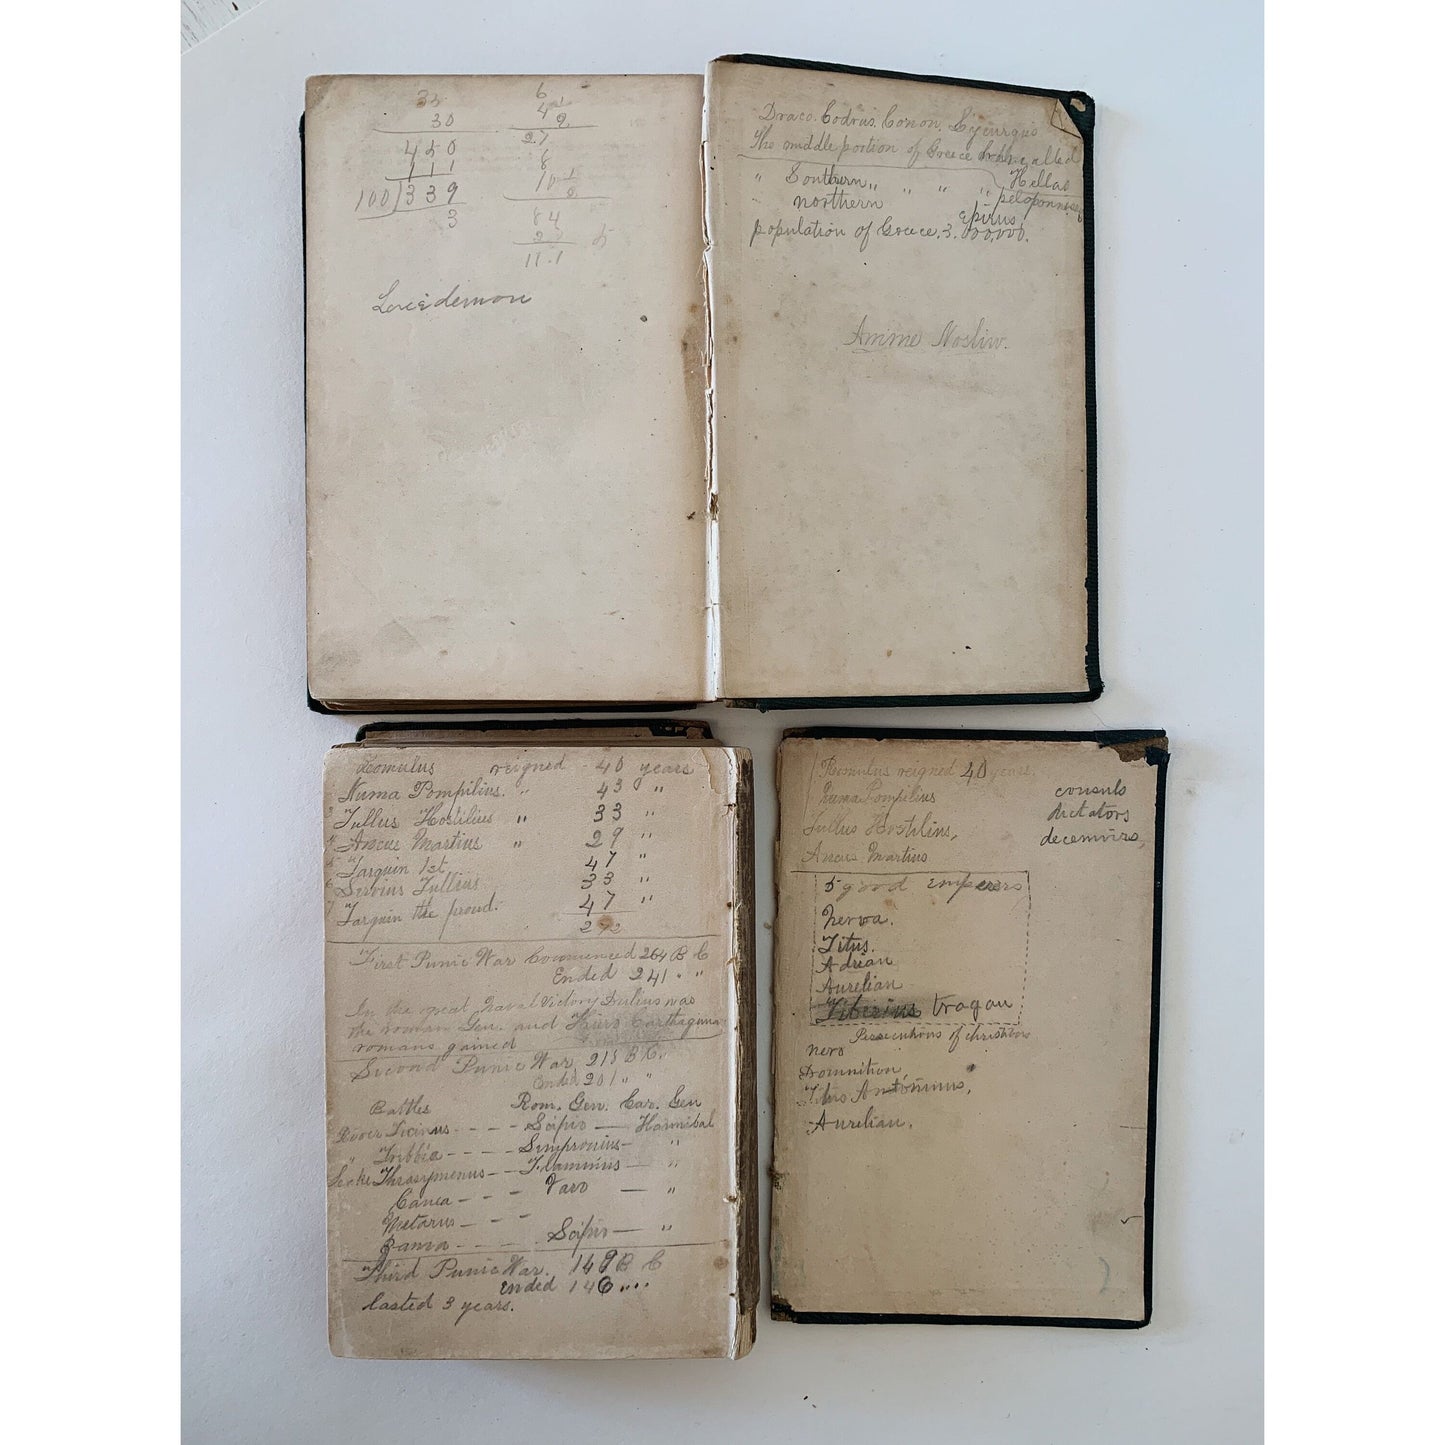 30
450
411
100)339
3
6
4 1/2
27
8
10 1/2
84
27
111
Lacedemon
Draco. Codrus. Conon. Lycurgus
The middle portion of Greece called
Hellas
" Southern " " " " peloponnesus
" northern Epirus.
population of Greece. 3.000,000.
Annie Nosliw.
Romulus reigned - 40 years
Numa Pompilius. " 43 "
3 Tullus Hostilius " 33 "
4 Ancus Martius " 29 "
5 Tarquin 1st 47 "
6 Servius Tullius 33 "
7 Tarquin the proud. 47 "
272
First Punic War Commenced 264 B C
Ended 241 " "
In the great Naval Victory Duilius was
the roman Gen. and Carthagena
romans gained
Second Punic War, 218 B C.
Ended 201 " "
Battles Rom. Gen. Car. Gen
River Ticinus - - - - Scipio — Hannibal
" Tribbia - - - - Simpronius - "
Lake Thrasymenus - - Flaminius — "
Canea - - - Varo — "
Metarus - - -
Zama - - - - Scipio — "
Third Punic War. 149 B C
Ended 146 " "
lasted 3 years.
Romulus reigned 40 years.
Numa Pompilius
Tullus Hostilius,
Ancus Martius
consuls
dictators
decemvirs,
5 good emperers
Nerva.
Titus.
Adrian
Aurelian
Tiberius tragan
Persecutions of christians
nero
Domnition
Titus Antoninus,
Aurelian.